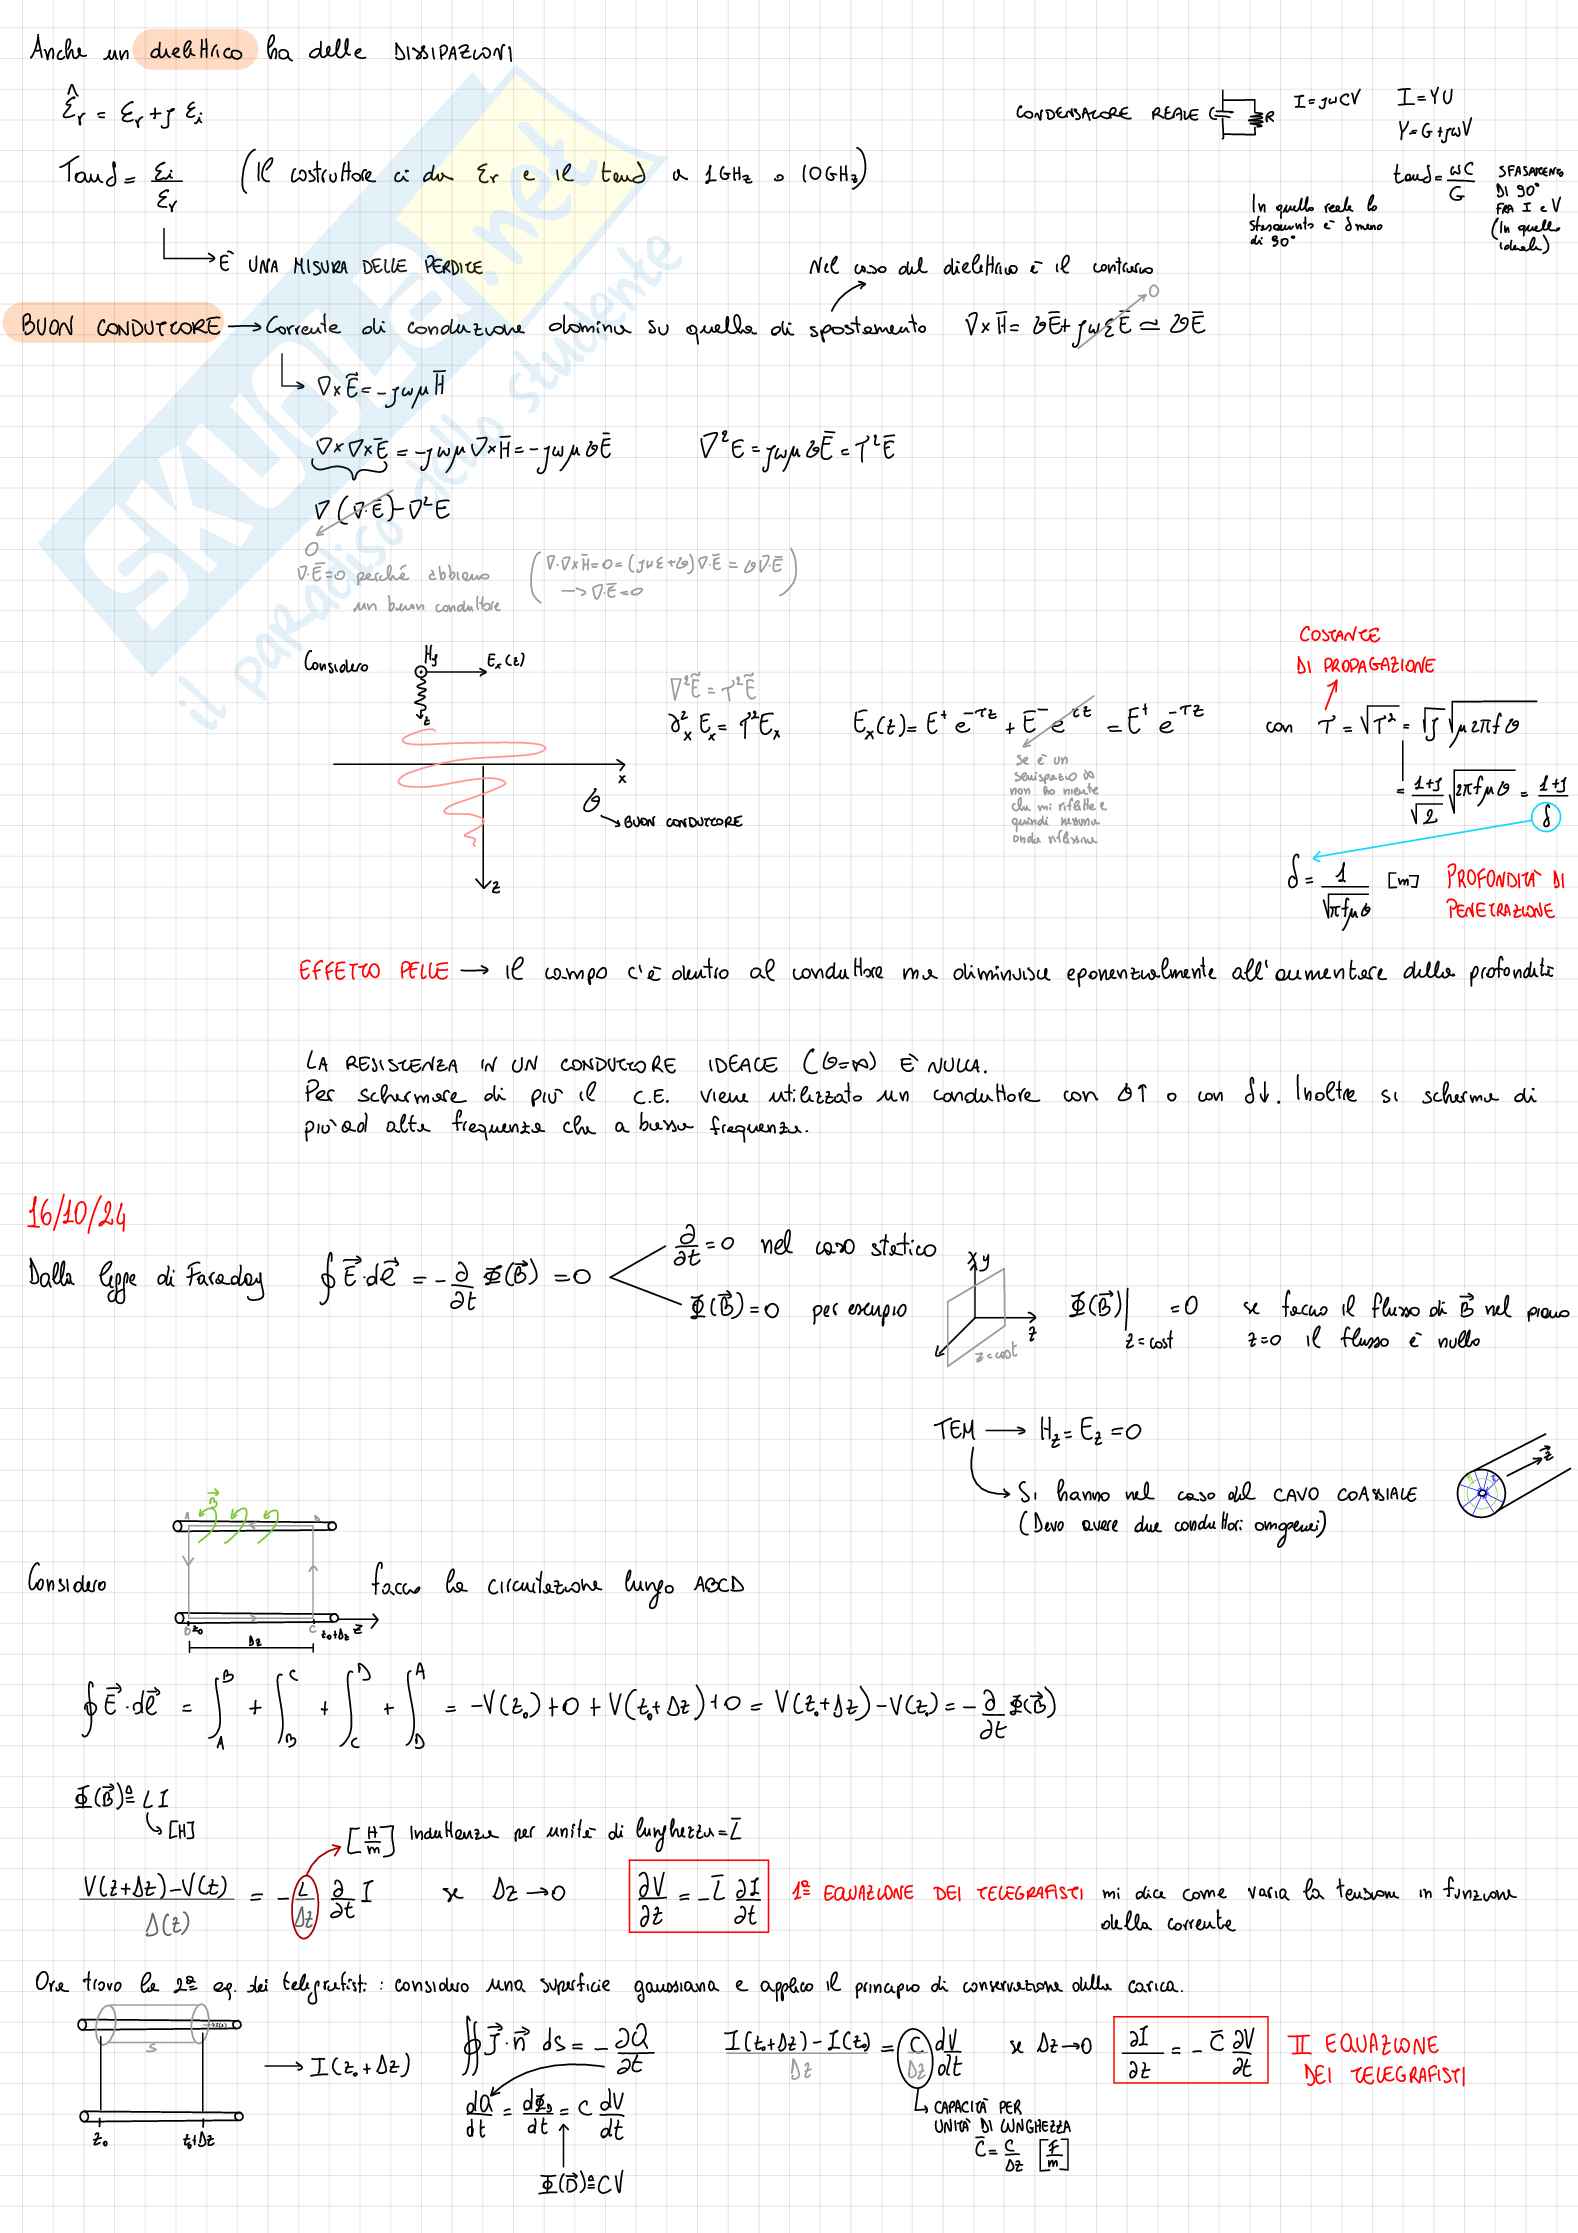 Anche un dielettrico ha delle DISSIPAZIONI
ε̂r = εr + j εi
CONDENSATORE REALE R I = jωCV I = YU
Y = G + jωV
Tanδ = εi/εr (Il costruttore ci da εr e il tanδ a 1GHz o 10GHz)
tanδ = ωC/G SFASAMENTO DI 90° FRA I e V (In quello ideale)
In quello reale lo sfasamento è δ meno di 90°
È UNA MISURA DELLE PERDITE
Nel caso del dielettrico è il contrario
BUON CONDUTTORE → Corrente di conduzione domina su quella di spostamento ∇×H̄ = σĒ + jωεĒ ≃ σĒ
0
∇×Ē = -jωμH̄
∇×∇×Ē = -jωμ∇×H̄ = -jωμσĒ ∇²E = jωμσĒ = τ²Ē
∇(∇·Ē) - ∇²E
0
∇·Ē=0 perché abbiamo un buon conduttore
(∇·∇×H̄ = 0 = (jωε+σ)∇·Ē = σ∇·Ē
→ ∇·Ē = 0)
COSTANTE
DI PROPAGAZIONE
Considero Hy Ex(z) z
∇²Ē = τ²Ē
∂²x Ex = τ²Ex Ex(z) = E⁺ e^-τz + E⁻ e^τz = E⁺ e^-τz con τ = √τ² = √j √μ2πfσ
Se è un
semispazio
non ho niente
che mi riflette e
quindi nessuna
onda riflessa
= 1+j/√2 √2πfμσ = 1+j/δ
x
σ
BUON CONDUTTORE
z
δ = 1/√πfμσ [m] PROFONDITÀ DI
PENETRAZIONE
EFFETTO PELLE → Il campo c'è dentro al conduttore ma diminuisce eponenzialmente all'aumentare della profondità
LA RESISTENZA IN UN CONDUTTORE IDEALE (σ=∞) È NULLA.
Per schermare di più il C.E. viene utilizzato un conduttore con σ↑ o con δ↓. Inoltre si scherma di
più ad alte frequenze che a basse frequenze.
16/10/24
Dalla legge di Faraday ∮E⃗·dl⃗ = -∂/∂t Φ(B⃗) = 0
∂/∂t = 0 nel caso statico
Φ(B⃗) = 0 per esempio
x y z z=cost
Φ(B⃗)| z=cost = 0 se faccio il flusso di B⃗ nel piano
z=0 il flusso è nullo
TEM → Hz = Ez = 0
Si hanno nel caso del CAVO COASSIALE
(Devo avere due conduttori omogenei)
z⃗
B⃗
Considero
faccio la circuitazione lungo ABCD
z₀ C z₀+Δz z
Δz
∮E⃗·dl⃗ = ∫A^B + ∫B^C + ∫C^D + ∫D^A = -V(z₀) + 0 + V(z₀+Δz) + 0 = V(z₀+Δz) - V(z₀) = -∂/∂t Φ(B⃗)
Φ(B⃗) ≜ LI
[H]
[H/m] Induttanza per unità di lunghezza = L̄
V(z+Δz)-V(z)/Δ(z) = -L/Δz ∂/∂t I se Δz→0 ∂V/∂z = -L̄ ∂I/∂t 1ª EQUAZIONE DEI TELEGRAFISTI mi dice come varia la tensione in funzione
della corrente
Ora trovo la 2ª eq. dei telegrafisti: considero una superficie gaussiana e applico il principio di conservazione della carica.
S
z₀ z₀+Δz
→ I(z₀+Δz)
∯J⃗·n⃗ ds = -∂Q/∂t I(z₀+Δz)-I(z₀)/Δz = C/Δz dV/dt se Δz→0 ∂I/∂z = -C̄ ∂V/∂t II EQUAZIONE
DEI TELEGRAFISTI
dQ/dt = dΦD/dt = C dV/dt
Φ(D⃗) ≜ CV
CAPACITÀ PER
UNITÀ DI LUNGHEZZA
C̄ = C/Δz [F/m]
SKUOLA.net
il paradiso dello studente